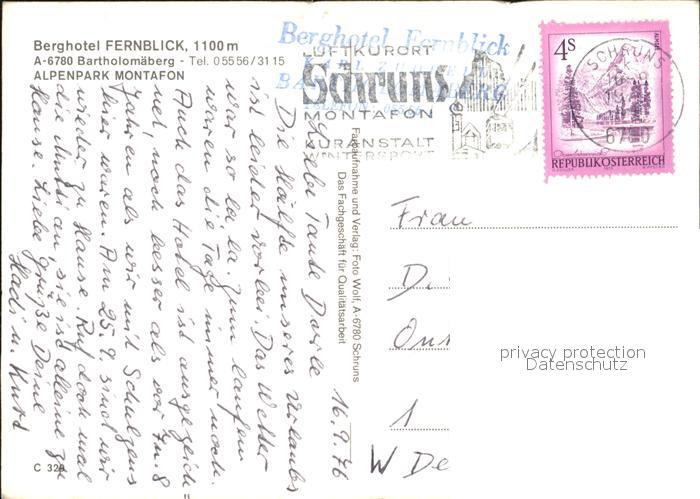 Berghotel FERNBLICK, 1100 m
A-6780 Bartholomäberg - Tel. 05556/3115
ALPENPARK MONTAFON
Berghotel Fernblick
LUFTKURORT
Schruns
MONTAFON
KURANSTALT
WINTERSPORT
SCHRUNS
6780
4S
REPUBLIK ÖSTERREICH
16.9.76
Liebe Tante Dorle
Die Hälfte unseres Urlaubes
ist leider vorbei. Das Wetter
war so la la. Zum laufen
waren die Tage immer noch.
Auch das Hotel ist ausgezeich
net, noch besser als vor 7 u. 8
Jahren als wir mit Schulgens
hier waren. Am 25.9. sind wir
wieder zu Hause. Ruf doch mal
die Mutti an, sie ist alleine zu
Hause. Liebe Grüße Deine
Hadi u. Kurt
Farbaufnahme und Verlag: Foto Wolf, A-6780 Schruns
Das Fachgeschäft für Qualitätsarbeit
Frau
D
On
1
W De
C 329
privacy protection
Datenschutz